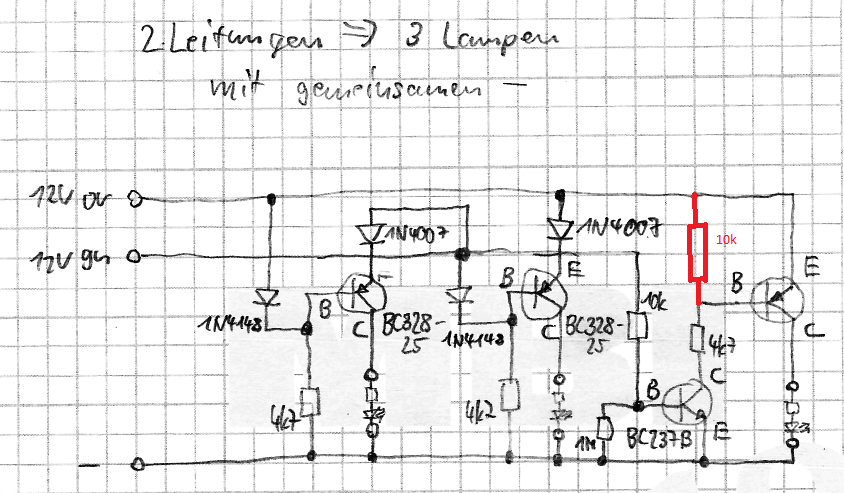 2 Leitungen => 3 Lampen
mit gemeinsamen -
12V or
12V gn
1N4007
1N4007
10k
E
B
E
B
E
B
1N4148
C
BC328-
25
1N4148
C
BC328-
25
10k
C
4k7
C
4k7
4k2
B
1M
BC237B
E
-